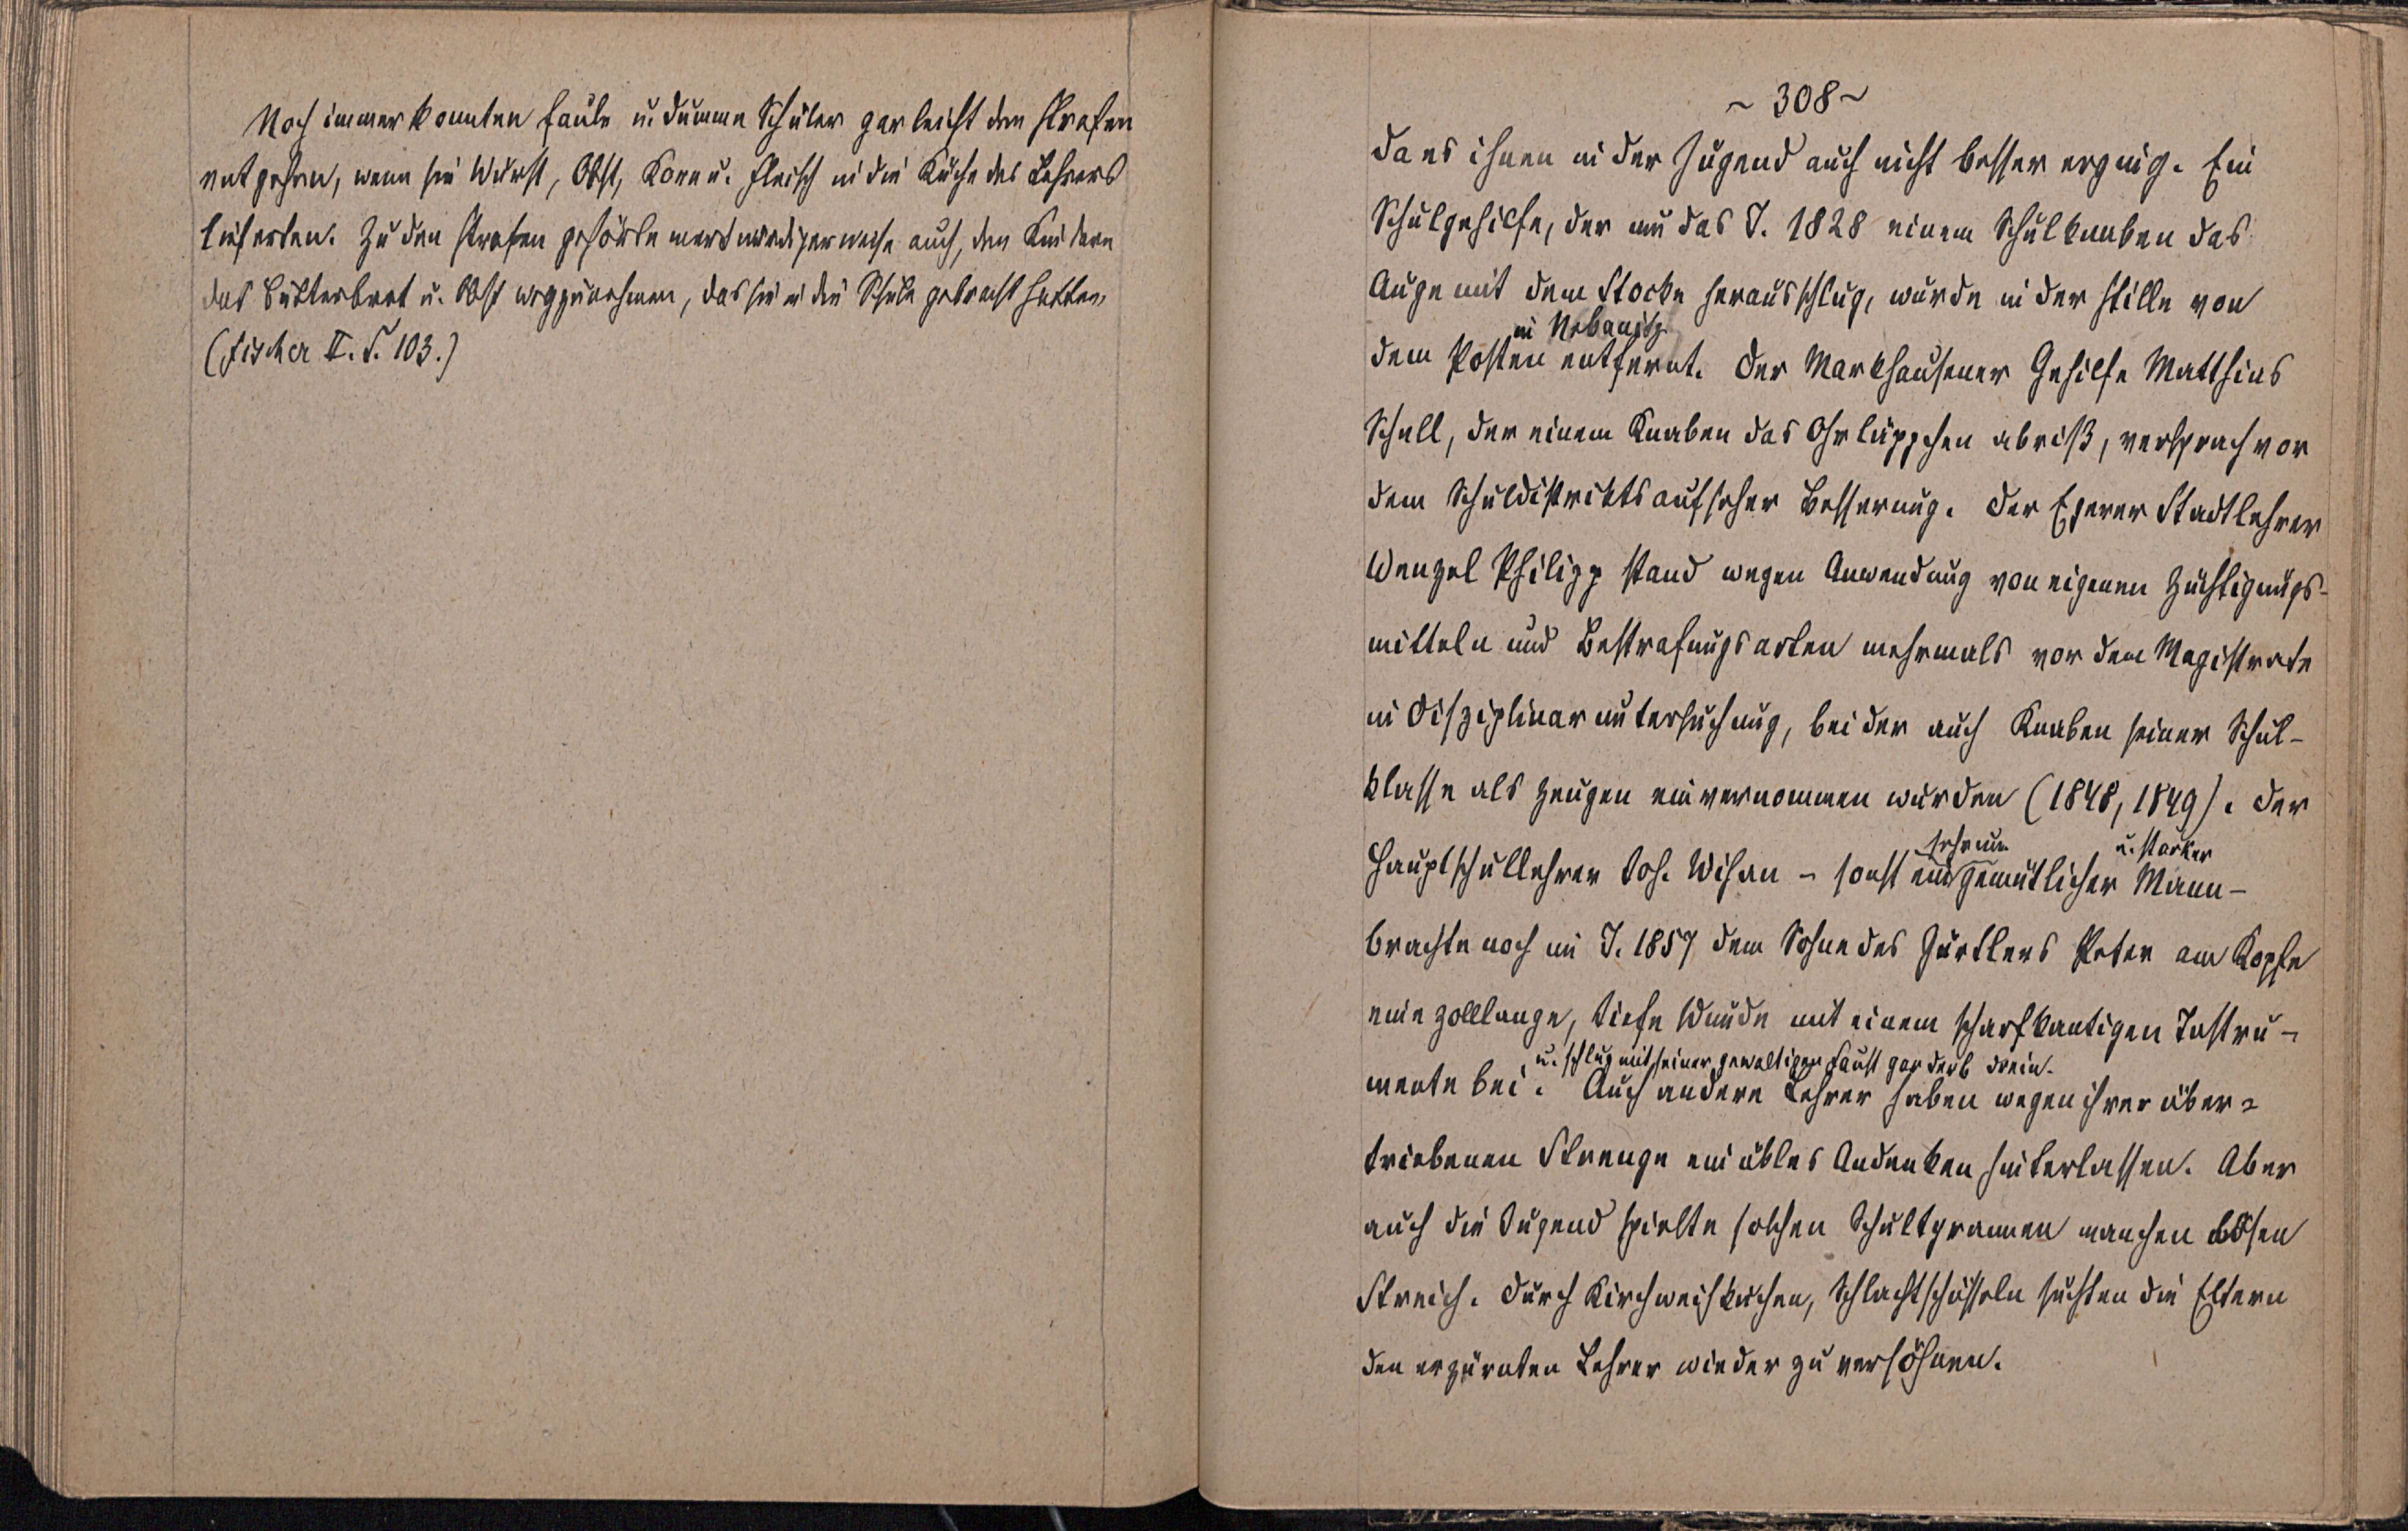 Noch immer konnten faule u. dumme Schüler gar leicht den Strafen
entgehen, wenn sie Wurst, Obst, Korn u. Fleisch in die Küche des Lehrers
lieferten. Zu den Strafen gehörte merkwürdigerweise auch, den Kindern
das Butterbrot u. Obst wegzunehmen, das sie in die Schule gebracht hatten.
(Fischer II. S. 103.)
~ 308 ~
da es ihnen in der Jugend auch nicht besser erging. Ein
Schulgehilfe, der um das J. 1828 einem Schulknaben das
Auge mit dem Stocke herausschlug, wurde in der Stille von
in Nebanitz
dem Posten entfernt. Der Markhausener Gehilfe Matthias
Schall, der einem Knaben das Ohrläppchen abriß, versprach vor
dem Schuldistriktsaufseher Besserung. Der Egerer Stadtlehrer
Wenzel Philipp stand wegen Anwendung von eigenen Züchtigungs-
mitteln und Bestrafungsarten mehrmals vor dem Magistrate
in Disziplinaruntersuchung, bei der auch Knaben seiner Schul-
klasse als Zeugen einvernommen wurden (1848, 1849). Der
u. starker
Hauptschullehrer Joh. Wihan – sonst ein gemütlicher Mann –
brachte noch im J. 1857 dem Sohne des Gürtlers Peter am Kopfe
eine zolllange, tiefe Wunde mit einem scharfkantigen Instru-
u. schlug mit seiner gewaltigen Faust gar derb drein.
mente bei. Auch andere Lehrer haben wegen ihrer über-
triebenen Strenge ein übles Andenken hinterlassen. Aber
auch die Jugend spielte solchen Schultyrannen manchen bösen
Streich. Durch Kirchweihkuchen, Schlachtschüsseln suchten die Eltern
den erzürnten Lehrer wieder zu versöhnen.